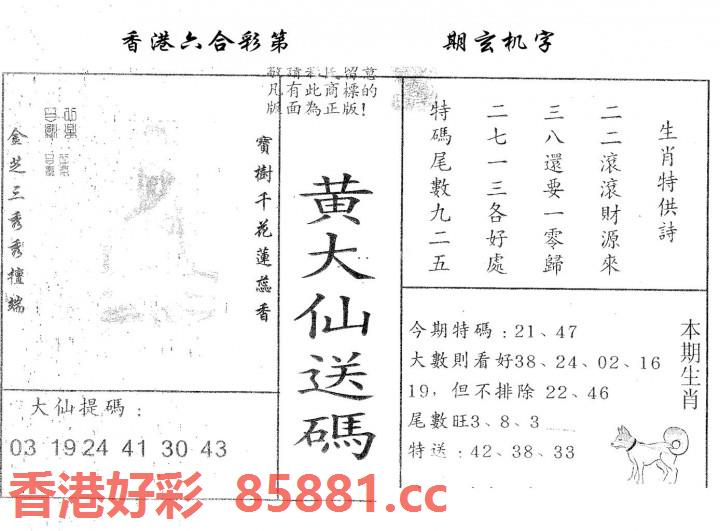 香港六合彩第　　　期玄机字
敬請彩民留意
凡有此商標的
版面為正版!
生肖特供詩
二二滾滾財源來
三八還要一零歸
二七一三各好處
特碼尾數九二五
黃大仙送碼
寶樹千花蓮蕊香
金芝三秀秀檀端
今期特碼:21、47
大數則看好38、24、02、16
19，但不排除 22、46
尾數旺3、8、3
特送:42、38、33
本期生肖
大仙提碼:
03 19 24 41 30 43
香港好彩 85881.cc